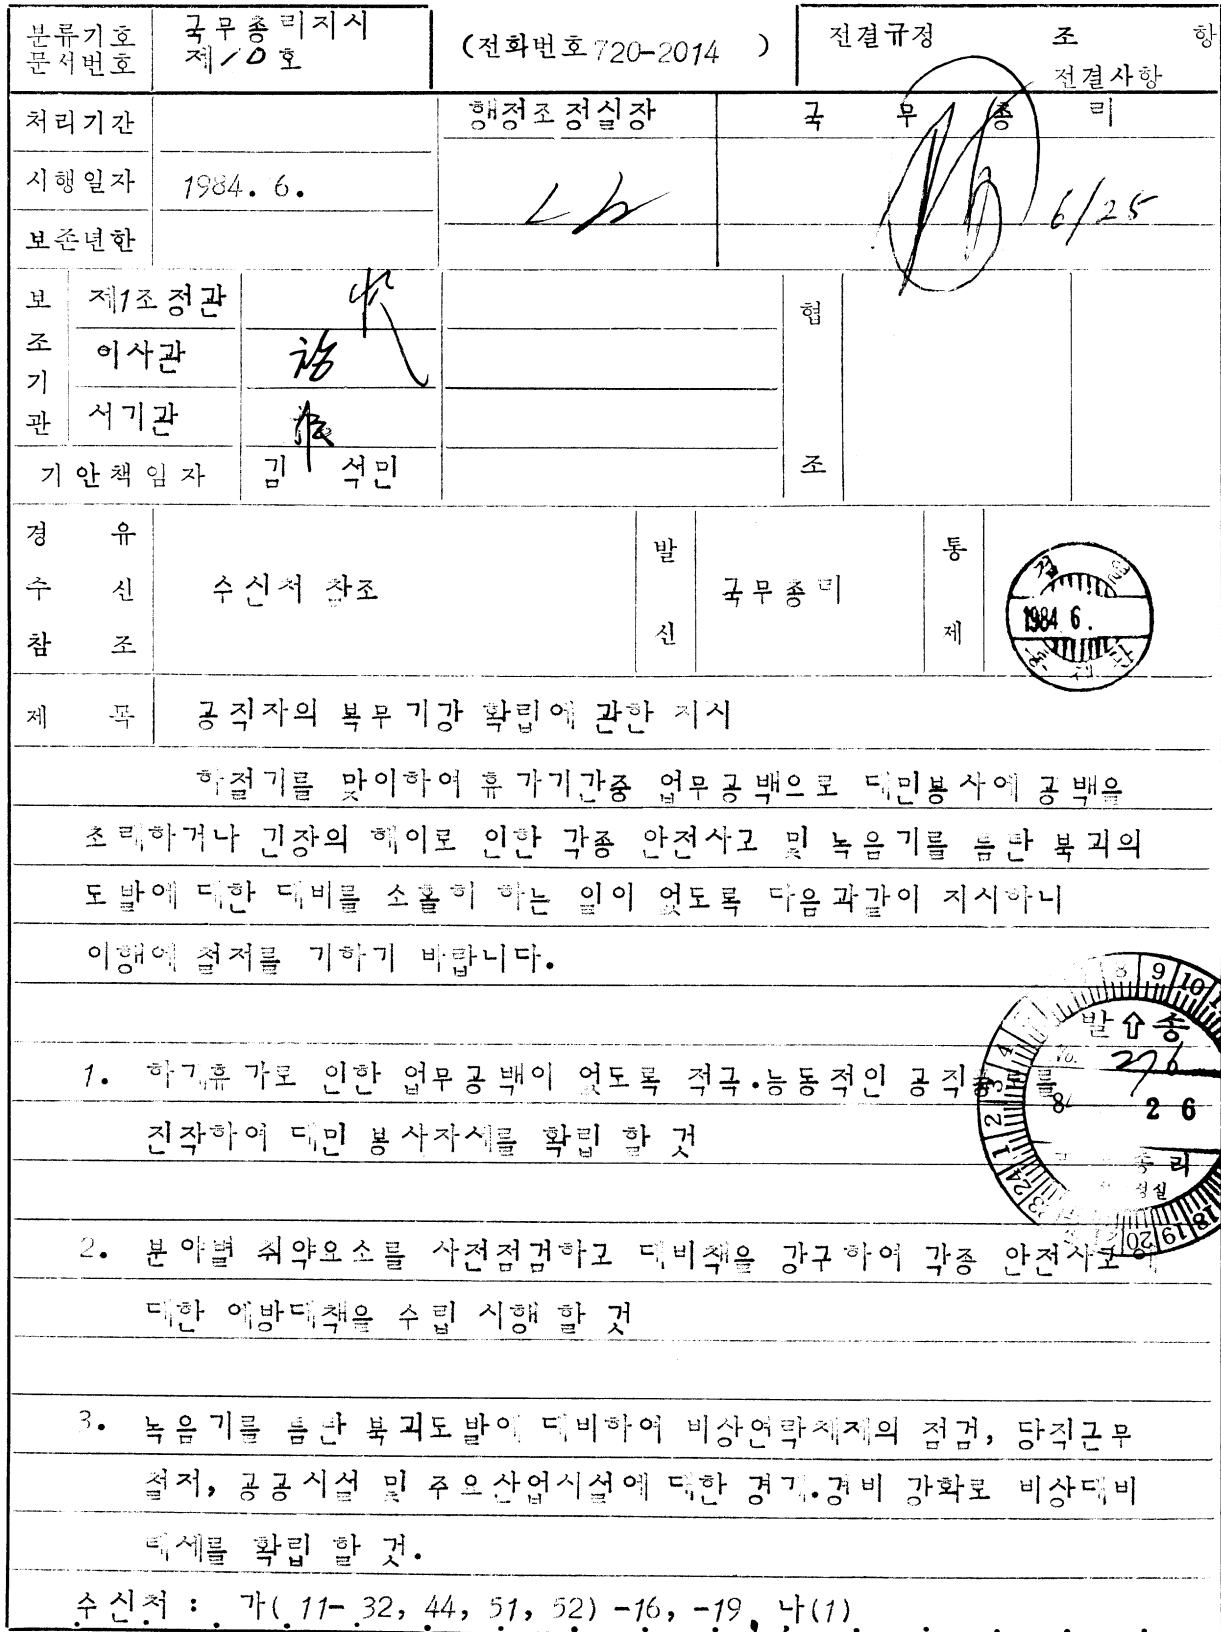 분류기호 국무총리지시
문서번호 제10호
(전화번호 720-2014 )
전결규정 조 항
전결사항
처리기간
행정조정실장 국 무 총 리
시행일자 1984. 6.
6/25
보존년한
보조기관
제1조정관
이사관
서기관
협조
기안책임자 김 석민
경 유
수 신 수신처 참조
참 조
발신 국무총리
통제
1984 6.
제 목 공직자의 복무기강 확립에 관한 지시
하절기를 맞이하여 휴가기간중 업무공백으로 대민봉사에 공백을
초래하거나 긴장의 해이로 인한 각종 안전사고 및 녹음기를 틈탄 북괴의
도발에 대한 대비를 소홀히 하는 일이 없도록 다음과같이 지시하니
이행에 철저를 기하기 바랍니다.
발⇧송
276
84 26
1. 하기휴가로 인한 업무공백이 없도록 적극.능동적인 공직 를
진작하여 대민 봉사자세를 확립 할 것
2. 분야별 취약요소를 사전점검하고 대비책을 강구하여 각종 안전사고에
대한 예방대책을 수립 시행 할 것
3. 녹음기를 틈탄 북괴도발에 대비하여 비상연락체제의 점검, 당직근무
철저, 공공시설 및 주요산업시설에 대한 경계.경비 강화로 비상대비
태세를 확립 할 것.
수신처 : 가( 11- 32, 44, 51, 52) -16, -19, 나(1)